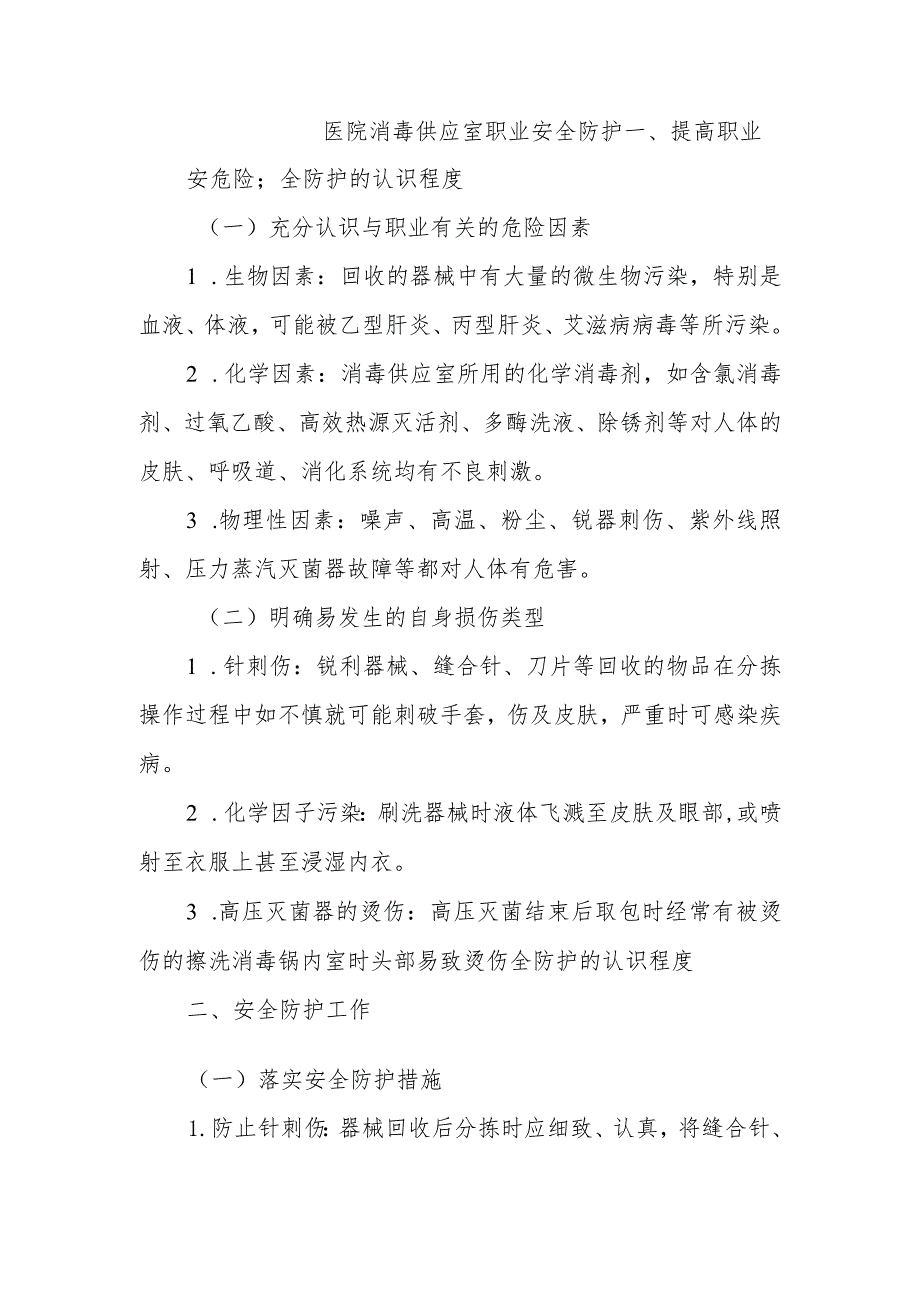 医院消毒供应室职业安全防护一、提高职业
安危险；全防护的认识程度
（一）充分认识与职业有关的危险因素
1 .生物因素：回收的器械中有大量的微生物污染，特别是
血液、体液，可能被乙型肝炎、丙型肝炎、艾滋病病毒等所污染。
2 .化学因素：消毒供应室所用的化学消毒剂，如含氯消毒
剂、过氧乙酸、高效热源灭活剂、多酶洗液、除锈剂等对人体的
皮肤、呼吸道、消化系统均有不良刺激。
3 .物理性因素：噪声、高温、粉尘、锐器刺伤、紫外线照
射、压力蒸汽灭菌器故障等都对人体有危害。
（二）明确易发生的自身损伤类型
1 .针刺伤：锐利器械、缝合针、刀片等回收的物品在分拣
操作过程中如不慎就可能刺破手套，伤及皮肤，严重时可感染疾
病。
2 .化学因子污染：刷洗器械时液体飞溅至皮肤及眼部,或喷
射至衣服上甚至浸湿内衣。
3 .高压灭菌器的烫伤：高压灭菌结束后取包时经常有被烫
伤的擦洗消毒锅内室时头部易致烫伤全防护的认识程度
二、安全防护工作
（一）落实安全防护措施
1.防止针刺伤：器械回收后分拣时应细致、认真，将缝合针、